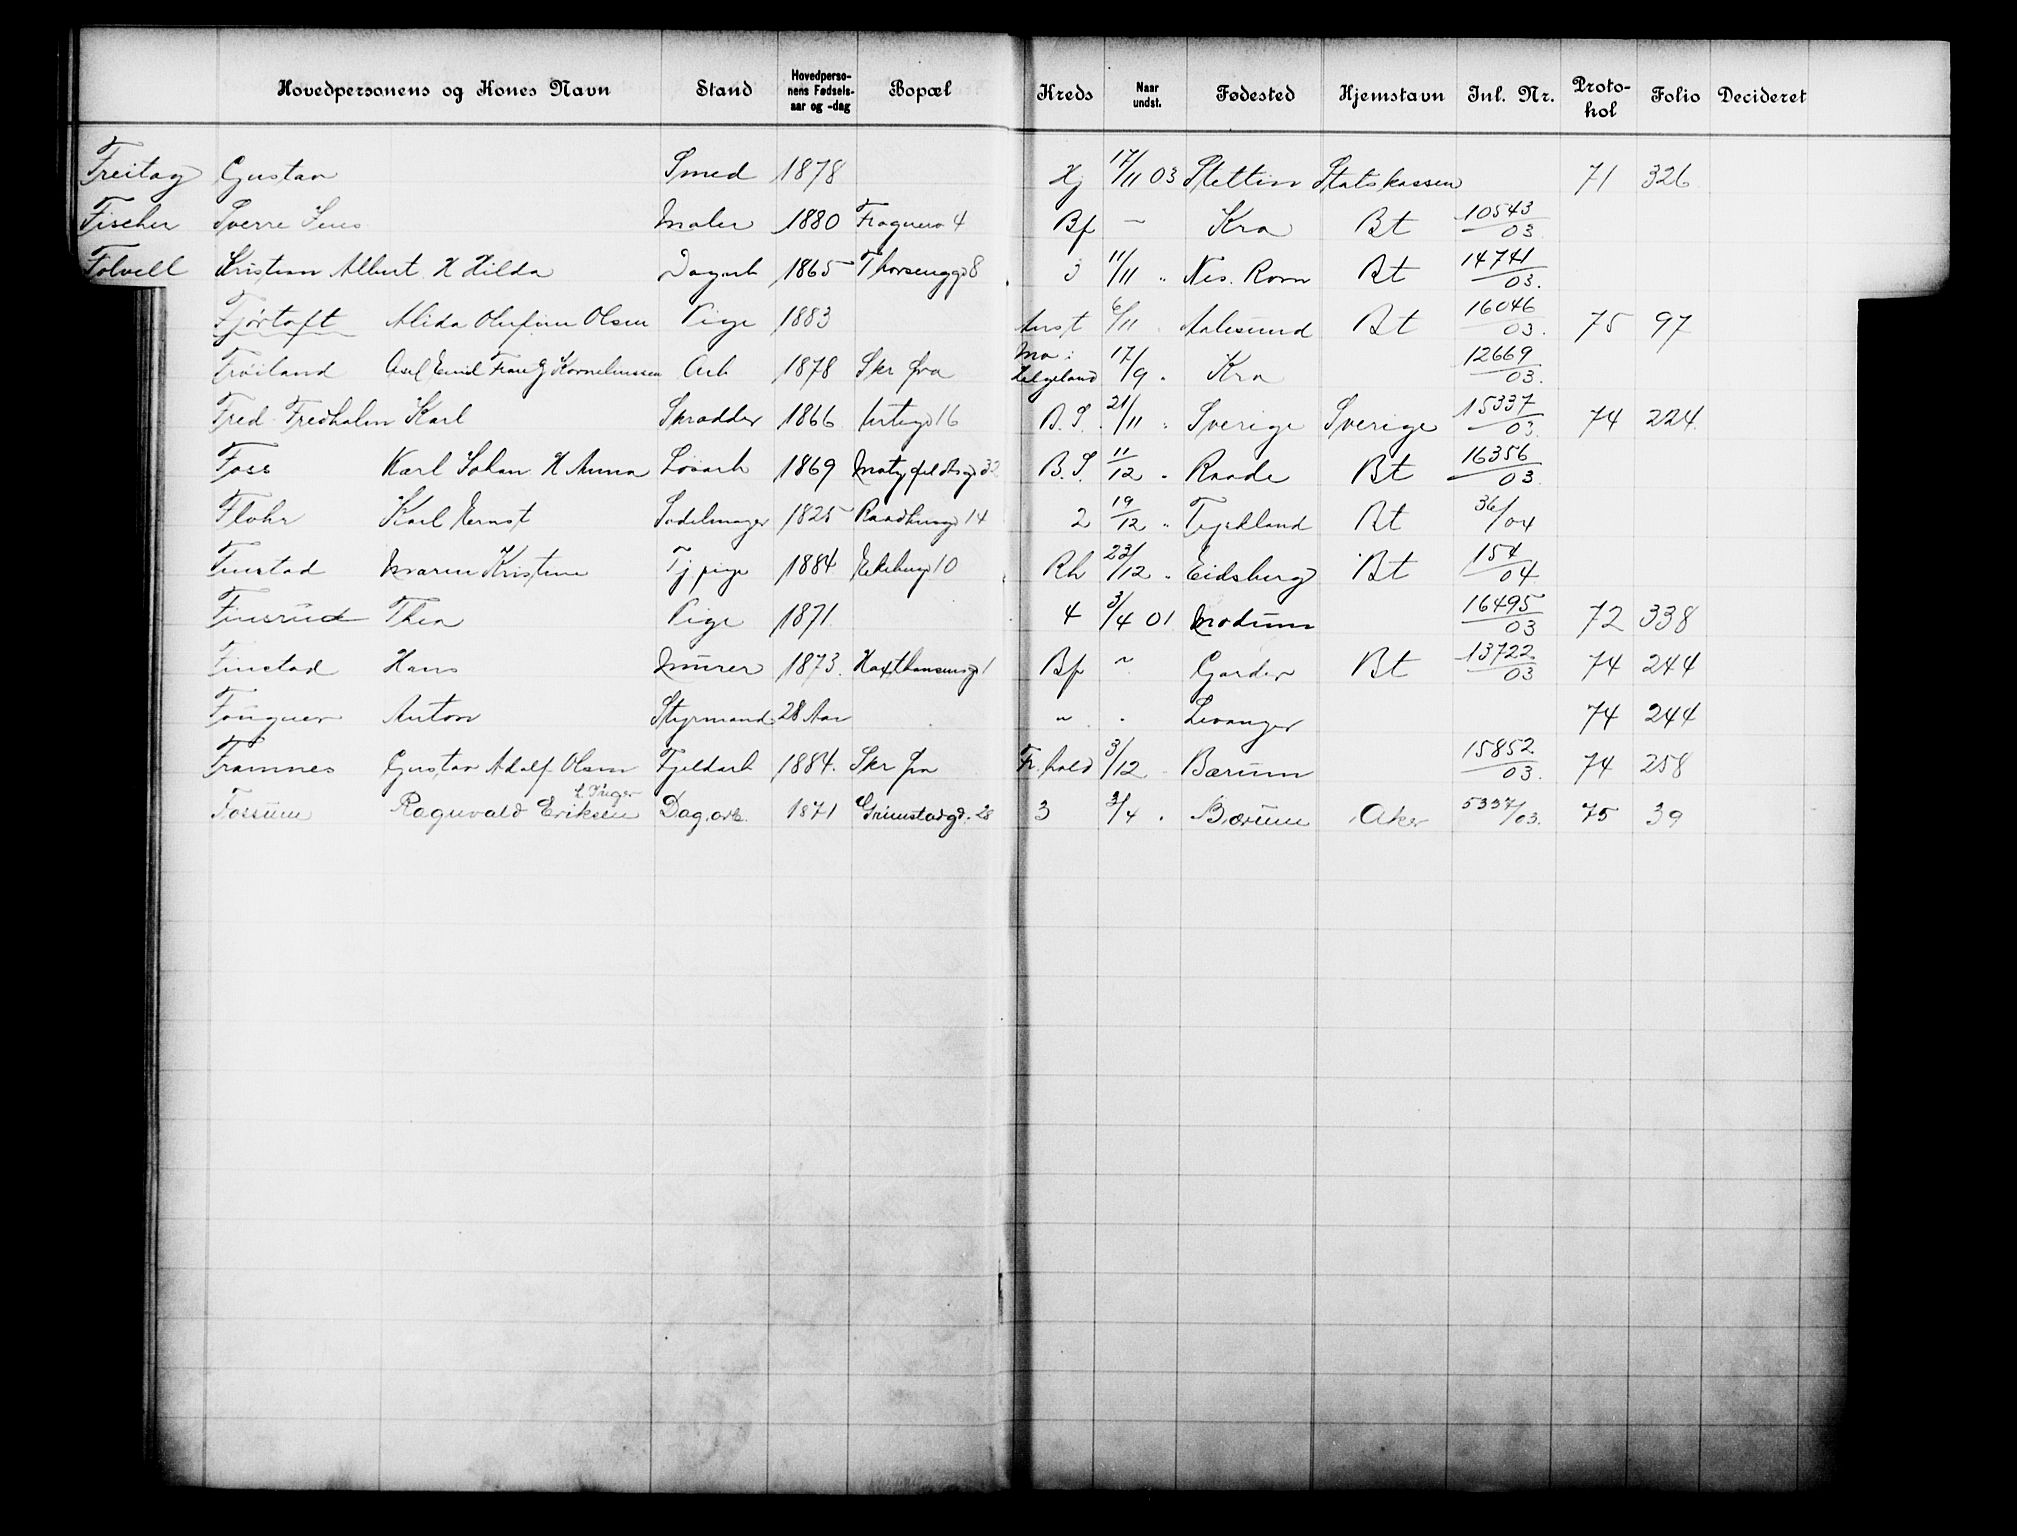 Hovedpersonens og Kones Navn Stand Hovedperso-nens Fødsels-aar og -dag Bopæl Kreds Naar undst. Fødested Hjemstavn Inl. Nr. Proto-kol Folio Decideret
Freitag Gustav Smed 1878 Hj 17/11 03 Stettin Statskassen 71 326
Fischer Sverre Jens Maler 1880 4 Bf — Kra Bt 10543/03
Folvell Kristian Albert H Hilda Dagarb 1865 8 3 11/11 " Nes. Rom Bt 14741/03.
Fjørtoft Alida Olufine Olsen Pige 1883 Anst 6/11 Aalesund Bt 16046/03. 75 97
Frøiland Axel Emil Korneliussen Arb 1878 Skr fra Mo i Helgeland 17/9 " Kra 12669/03.
Fred-Fredholm Karl Skrædder 1866 Urtegd 16 B.S. 21/11 " Sverige Sverige 15337/03. 74 224.
Foss Karl Johan H Anna Løsarb 1869 32 B.S. 11/12 " Raade Bt 16356/03.
Flohr Karl Ernst Sadelmager 1825 Raadhusgd 14 2 19/12 " Tyskland Bt 36/04
Finstad Maren Kristine Tj pige 1884 Ekebergd 10 Rh 23/12 " Eidsberg Bt 154/04
Finsrud Thea Pige 1871. 4 3/4 01 Modum 16495/03 72 338
Finstad Hans Murer 1873. Haxthausensgd 1 Bf ~ Garder Bt 13722/03 74 244
Anton Styrmand 28 Aar " " Levanger 74 244
Framnes Gustav Adolf Olsen Fjeldarb 1884. Skr fra Fr.hald 3/12 Bærum 15852/03. 74 258
Fossum Ragnvald Eriksen Inger Dag.arb. 1871 Grimstadgd. 28 3 3/4 " Bærum Aker 5337/03. 75 39